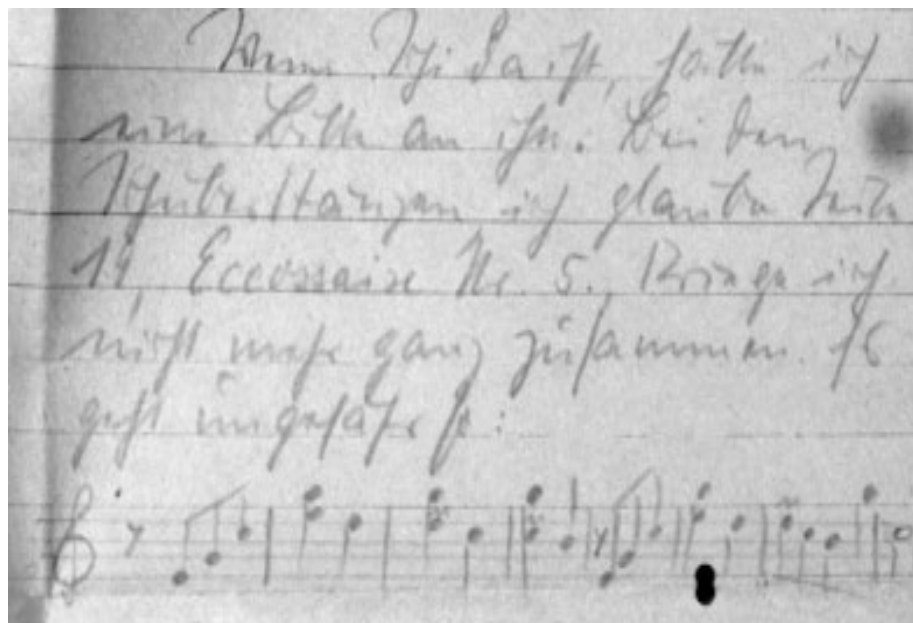 Wenn Schi da ist, hätte ich
eine Bitte an ihn. Bei den
Schuberttänzen ich glaube Seite
19, Eccossaise Nr. 5. Bringe ich
nicht mehr ganz zusammen. Es
geht ungefähr so: